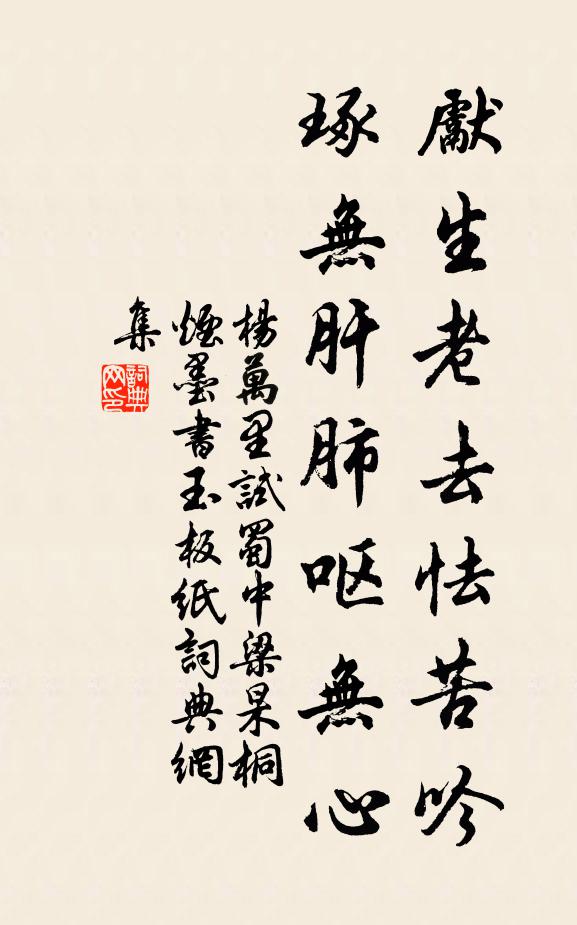 獻生老去怯苦吟
琢無肝肺呕無心
楊萬里試蜀中梁杲桐
煙墨書玉板紙詞典網
集
詞典
网印